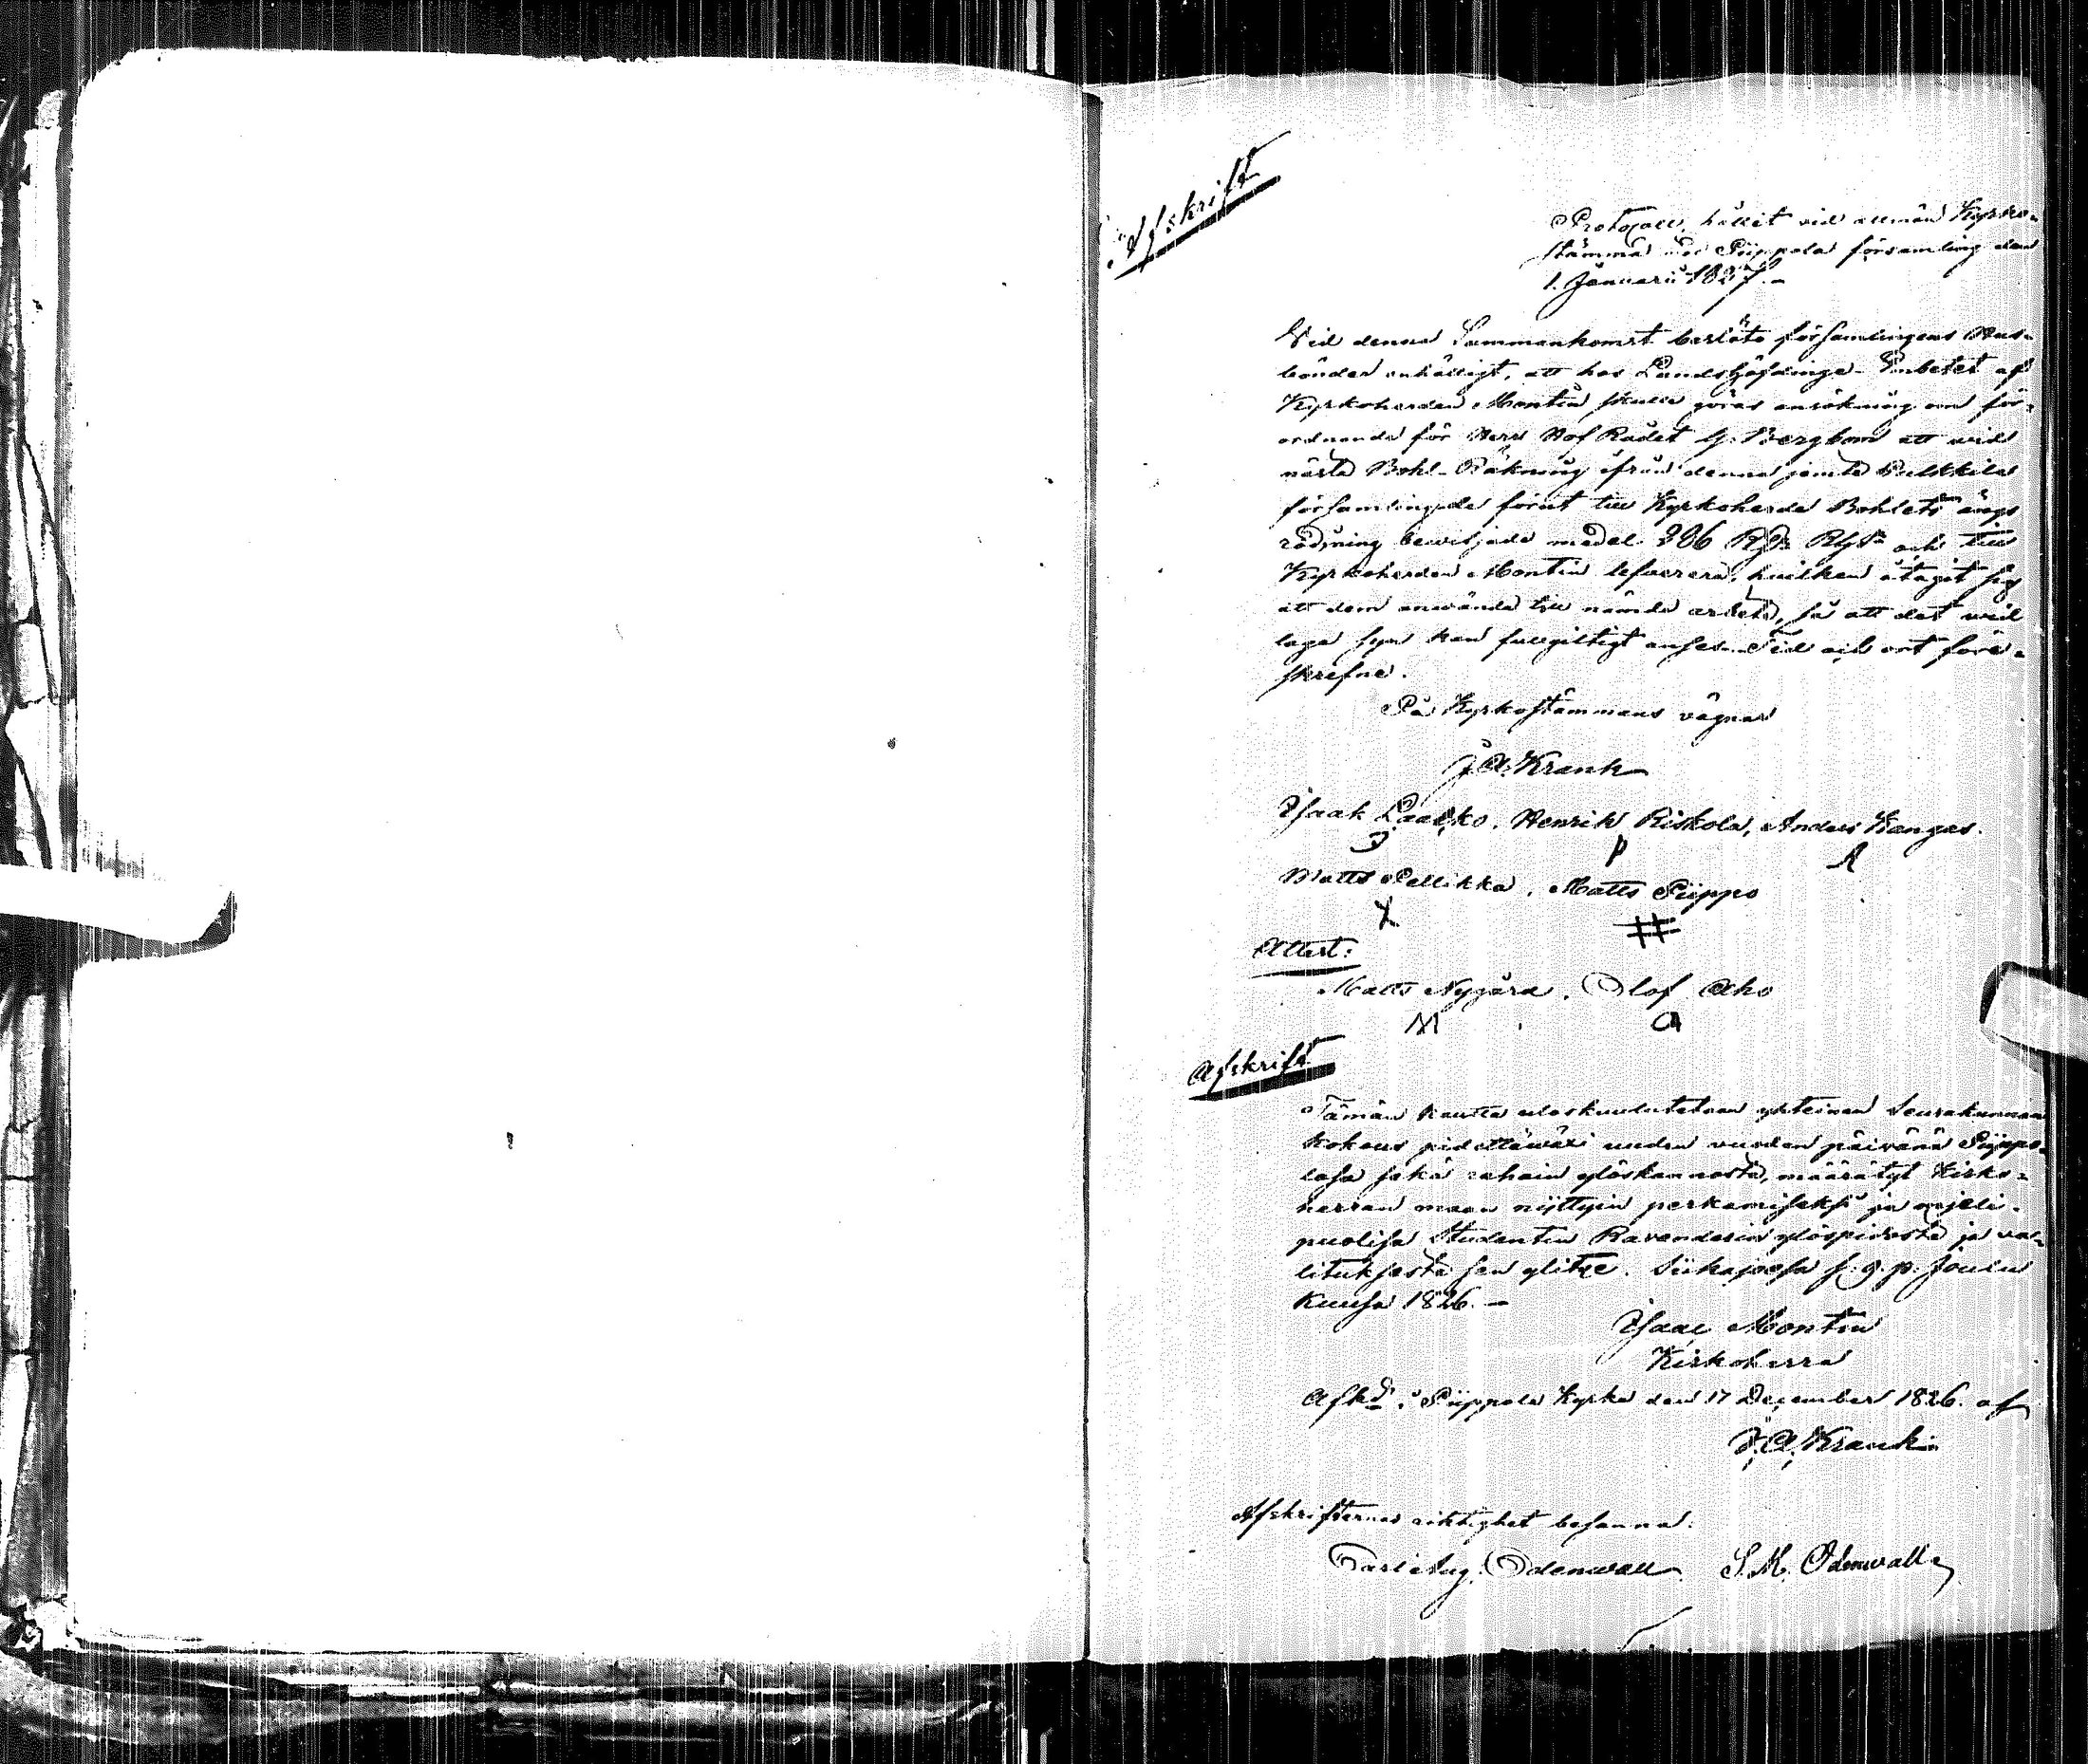 Afskrift
Protocoll, hållit vid allmän Kyrko-
stämma i Piippola församling den
1. Januarii 1827.-
Vid denna Sammankomst besluto församlingens Hus-
bönder enhälligt, att hos Landshöfdinge-Embetet af
Kyrkoherden Montin skulle göras ansökning om för-
ordnande för Herr Hof Rådet G. Bergbom att vid
nästa Bohl-Räkning ifrån denna jemte Pulkkila
församlingade förut till Kyrkoherde Bohlets ängs
rödjning beviljade medel 226 Rd RGs och till
Kyrkoherden Montin lefverera, hvilken åtagit sig
att dem använda till nämde arbete, så att det vid
laga syn kan fullgiltigt anses. Tid och ort före-
skrefne.
På Kyrkostämmans vägnar
J. A. Krank
Isaak Laakko. Henrik Riskola, Anders Kangas.
P A
Matts Pellikka. Matts Piippo
X #
Attest:
Matts Nygård. Olof Aho
M A
Afskrift
Tämän kautta uloskuulutetaan yhteinen Seurakunnan
kokous pidettäwäxi uuden vuoden päivänä Piippo-
lasa sekä rahain ylöskannosta, määrätyt Kirko-
herran maan nijttyin perkamiseksi ja
puolisa Studentin Ravanderin ylöspidosta ja va-
lituksesta sen ylitze. Siikajoesa s. 9. p. Joulu
kuusa 1826.-
Isaac Montin
Kirkoherra
Afkd i Piippola Kyrka den 17 December 1826. af
J. A. Krank
Afskrifternas riktighet besanna:
Carl Aug. Odenwall S. M. Odenwall